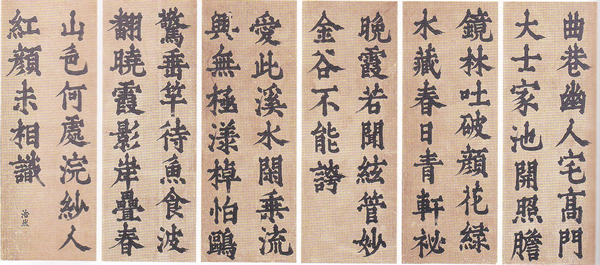 曲巷幽人宅髙門
大士家池開照膽
鏡林吐破顏花緑
水藏春日青軒祕
晚霞若聞絃管妙
金谷不能誇
愛此溪水閑乘流
興無極漾棹怕鷗
驚垂竿待魚食波
翻曉霞影岸疊春
山色何處浣紗人
紅顏未相識